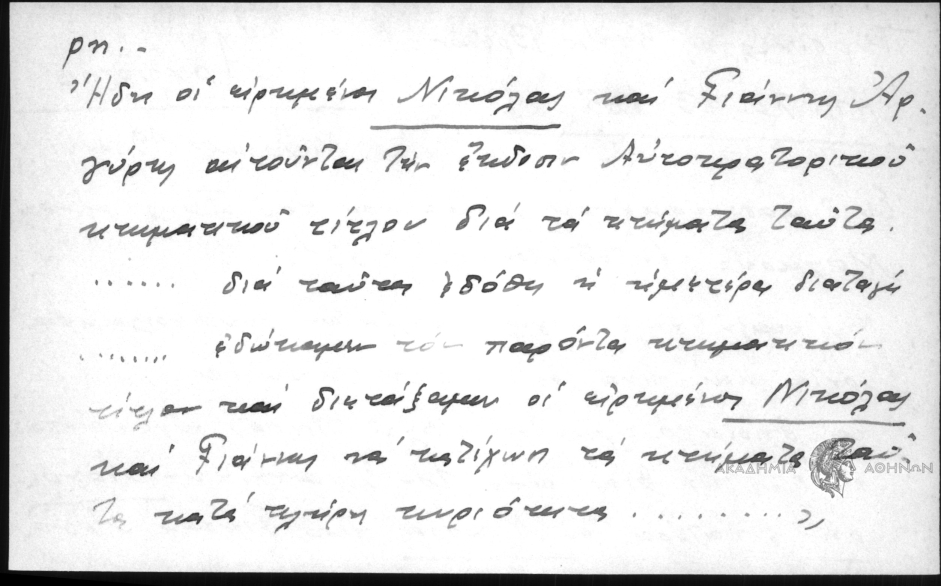 ρη..-
Ἤδη οἱ εἰρημένοι Νικόλας καί Γιάννης Ἀρ-
γύρης αἰτοῦνται τήν ἔκδοσιν Αὐτοκρατορικοῦ
κτηματικοῦ τίτλου διά τά κτήματα ταῦτα.
....... διά ταῦτα ἐδόθη ἡ ἡμετέρα διαταγή
........ ἐδώκαμεν τόν παρόντα κτηματικόν
τίτλον καί διετάξαμεν οἱ εἰρημένοι Νικόλας
καί Γιάννης νά κατέχωσι τά κτήματα ταῦ-
τα κατά πλήρη κυριότητα ........ »
ΑΚΑΔΗΜΙΑ ΑΘΗΝΩΝ